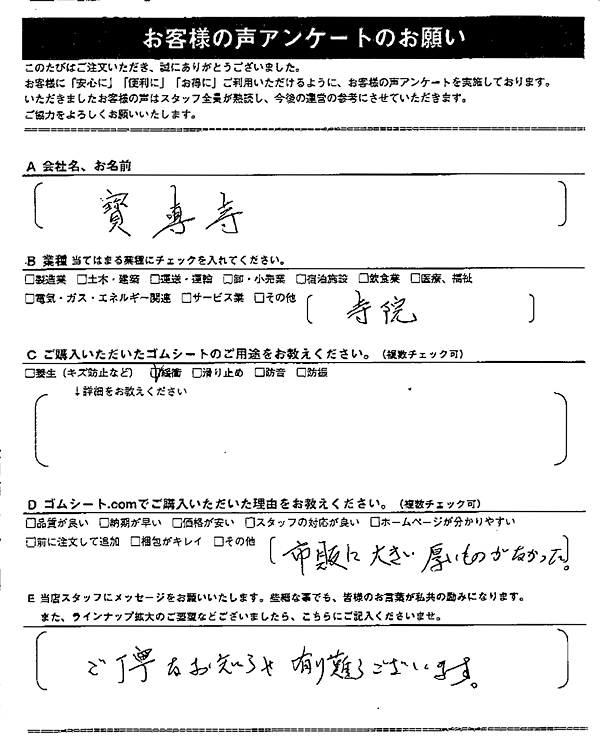 お客様の声アンケートのお願い
このたびはご注文いただき、誠にありがとうございました。
お客様に「安心に」「便利に」「お得に」ご利用いただけるように、お客様の声アンケートを実施しております。
いただきましたお客様の声はスタッフ全員が熟読し、今後の運営の参考にさせていただきます。
ご協力をよろしくお願いいたします。
A 会社名、お名前
寳専寺
B 業種 当てはまる業種にチェックを入れてください。
□製造業 □土木・建築 □運送・運輸 □卸・小売業 □宿泊施設 □飲食業 □医療、福祉
□電気・ガス・エネルギー関連 □サービス業 □その他 寺院
C ご購入いただいたゴムシートのご用途をお教えください。(複数チェック可)
□養生(キズ防止など) ☑緩衝 □滑り止め □防音 □防振
↓詳細をお教えください
D ゴムシート.comでご購入いただいた理由をお教えください。(複数チェック可)
□品質が良い □納期が早い □価格が安い □スタッフの対応が良い □ホームページが分かりやすい
□前に注文して追加 □梱包がキレイ □その他 市販に大きい厚いものがなかった。
E 当店スタッフにメッセージをお願いいたします。些細な事でも、皆様のお言葉が私共の励みになります。
また、ラインナップ拡大のご要望などございましたら、こちらにご記入くださいませ。
ご丁寧なお知らせ有り難うございます。